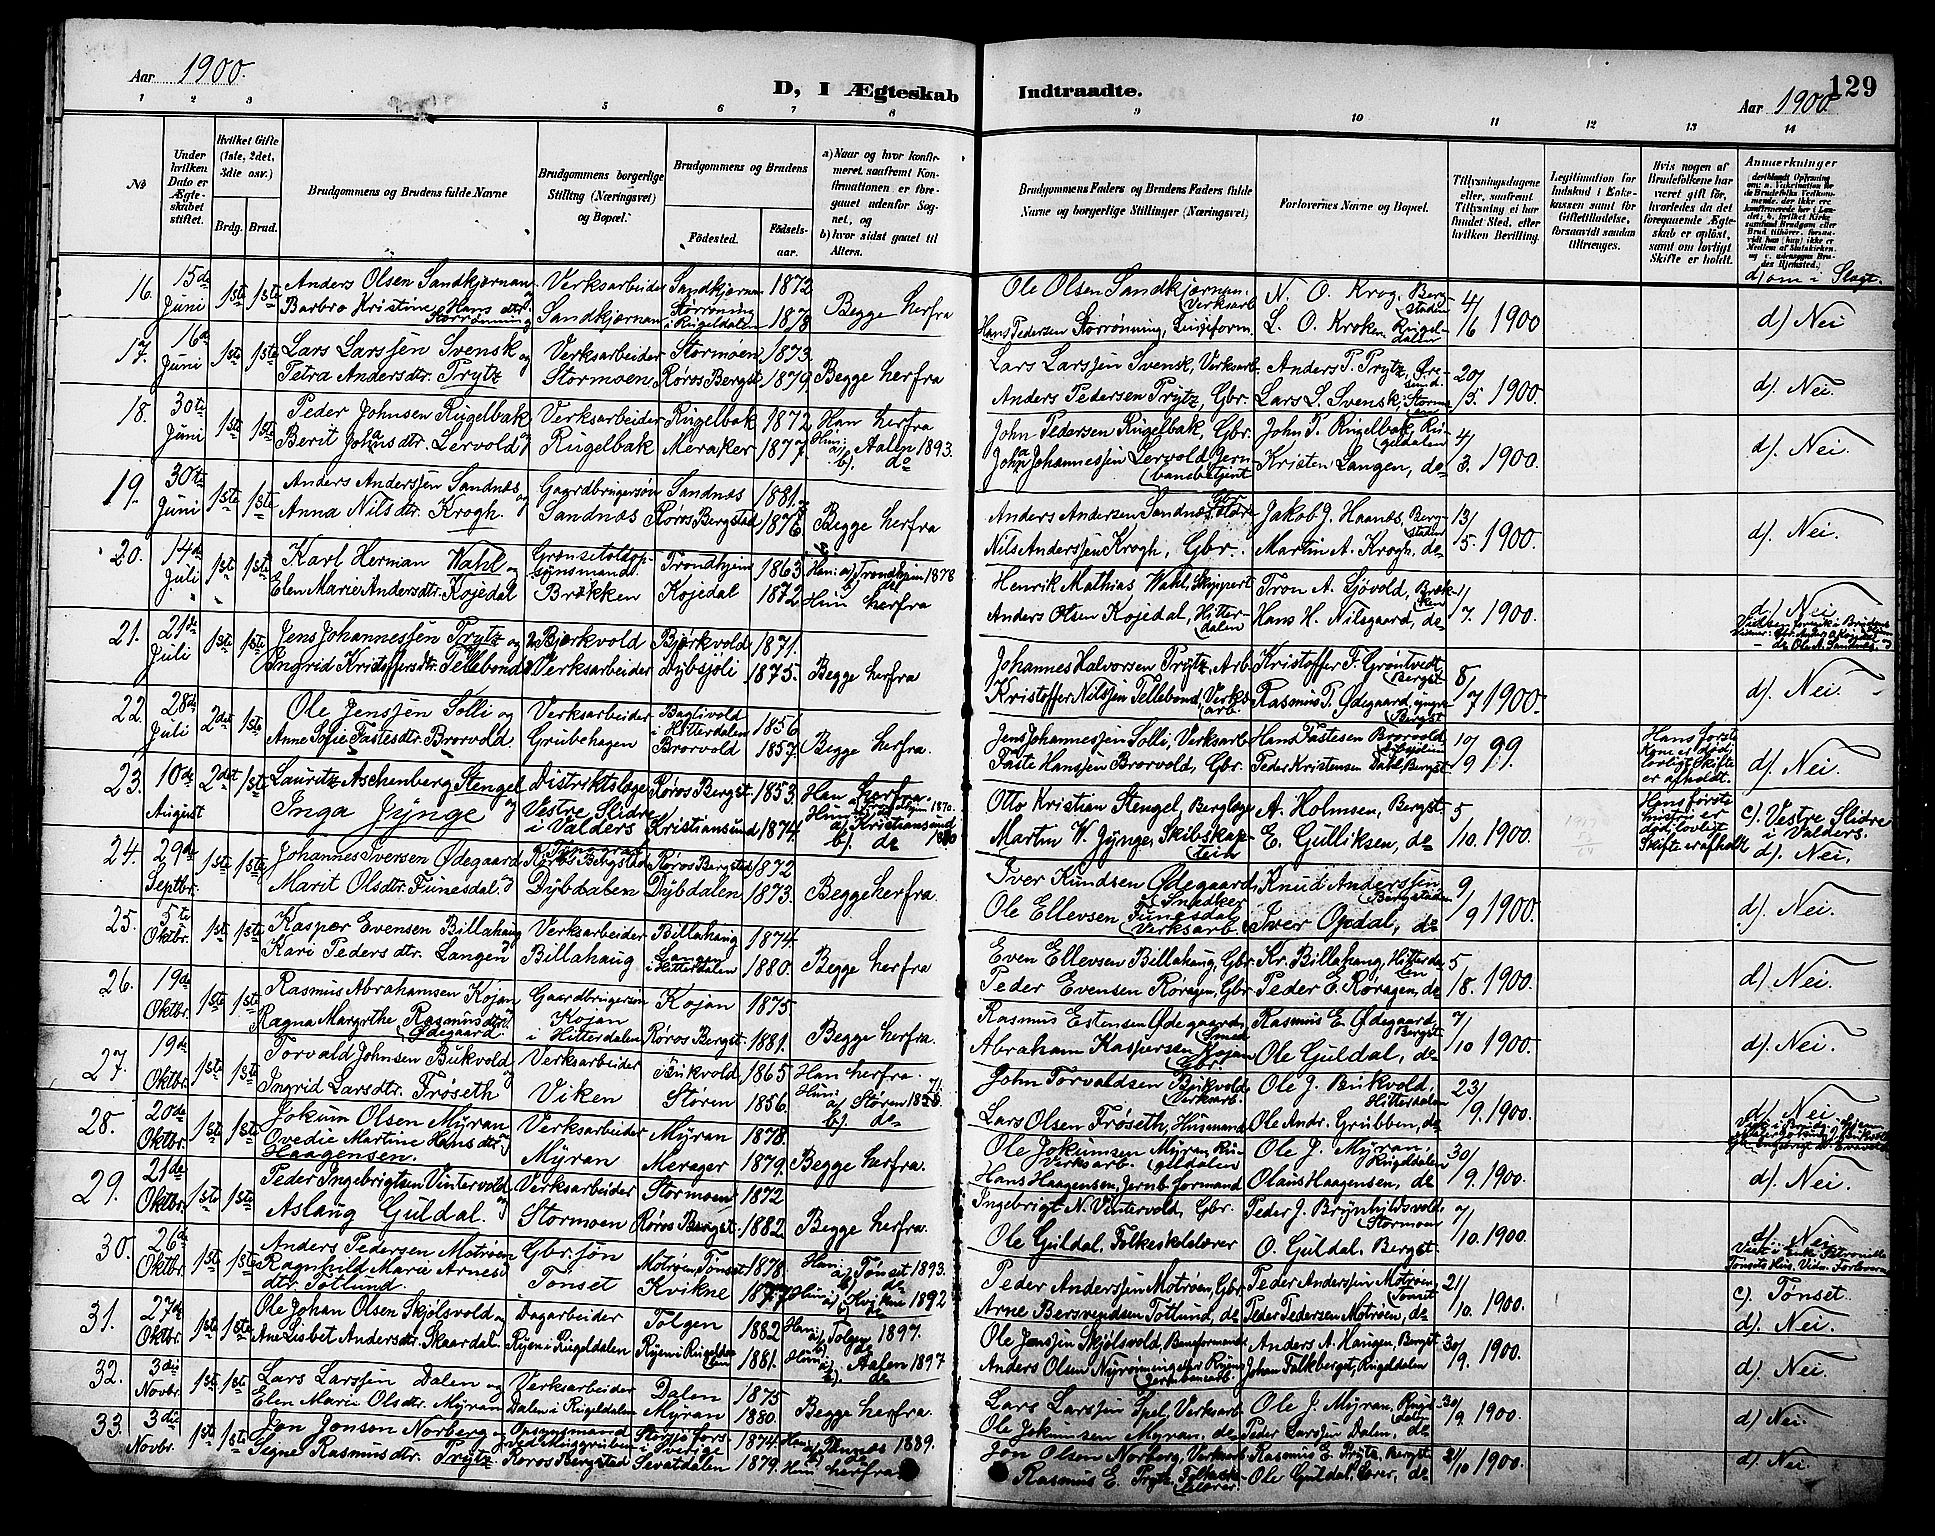 Aar 1900.
D, I Ægteskab Indtraadte.
Aar 1900
129
1 2 3 5 6 7 8 9 10 11 12 13 14
No
Under hvilken Dato er Ægteskabet stiftet.
Hvilket Gifte (1ste, 2det, 3die osv.)
Brdg. Brud.
Brudgommens og Brudens fulde Navne
Brudgommens borgerlige Stilling (Næringsvei) og Bopel.
Brudgommens og Brudens
Fødested.
Fødselsaar.
a) Naar og hvor konfirmeret, saafremt Konfirmationen er foregaaet udenfor Sognet, og
b) hvor sidst gaaet til Alters.
Brudgommens Faders og Brudens Faders fulde Navne og borgerlige Stillinger (Næringsvei)
Forlovernes Navne og Bopel.
Tillysningsdagene eller, saafremt Tillysning ei har fundet Sted, efter hvilken Bevilling.
Legitimation for Indskud i Enkekassen samt for Giftetilladelse, forsaavidt saadan tiltrænges.
Hvis nogen af Brudefolkene har været gift før, hvorledes da det foregaaende Ægteskab er opløst, samt om lovligt Skifte er holdt.
Anmærkninger
d) om i Slagt.
16. 15de Juni 1ste 1ste Anders Olsen Sandkjernan og Verksarbeider Sandkjernan 1872 Begge herfra Ole Olsen Sandkjernan, Verksarb. N. O. Krog, Bergstaden 4/6 1900 d) Nei
Barbro Kristine Hansdtr. Storrønning Sandkjernan Storrønning i Rugeldalen 1878 Hans Pedersen Storrønning, L. O. Kroken, Rugeldalen
17. 16de Juni 1ste 1ste Lars Larssen Svensk og Verksarbeider Stormoen 1873. Begge herfra Lars Larssen Svensk, Verksarb. Anders P. Prytz, 20/5. 1900. d). Nei.
Petra Andersdtr. Prytz Stormoen Røros Bergst. 1879. Anders Pedersen Prytz, Gbr. Lars L. Svensk, Stormoen
18. 30te Juni 1ste 1ste Peder Johnsen Rugelbak og Verksarbeider Rugelbak 1872 Han herfra John Pedersen Rugelbak, Gbr. John P. Rugelbak, Rugeldalen 4/3. 1900. d). Nei.
Berit Johansdtr. Lervold Rugelbak Meraker 1877. Hun: a) Aalen 1893. b). do Johan Johannessen Lervold, Jernbanebetjent Kristen Langen, do
19. 30te Juni 1ste 1ste Anders Anderssen Sandnæs og Gaardbrugersøn Sandnæs 1881. Begge herfra Anders Andersen Sandnæs, Gbr. Jakob J. Haanæs, Bergstaden 13/5 1900. d). Nei.
Anna Nilsdtr. Krogh. Sandnæs Røros Bergstad 1876. Nils Anderssen Krogh, Gbr. Martin A. Krogh, do
20. 14de Juli 1ste 1ste Karl Herman Wahl og Grønsetoldopsynsmand Trondhjem 1863 Han: a) Trondhjem 1878 Henrik Mathias Wahl, Skippert Tron A. Sjøvold, Brækken 1/7 1900. d). Nei
Elen Marie Andersdtr. Kojedal Brækken Kojedal 1872 Hun herfra Anders Olsen Kojedal, Hitterdalen Hans H. Nilsgaard, do
21. 21de Juli 1ste 1ste Jens Johannessen Prytz og Bjørkvold Bjørkvold 1871. Begge herfra Johannes Halvorsen Prytz, Arb. Kristoffer F. Grøntvedt Bergst. 8/7 1900. d). Nei.
Ingrid Kristoffersdtr. Tellebond Verksarbeider Dybsjoli 1875. Kristoffer Nilssen Tellebond, Verksarb. Rasmus P. Ødegaard, yngre Bergst.
22. 28de Juli 2det 1ste Ole Jenssen Solli og Verksarbeider Bagtivold i Hitterdalen 1856 Begge herfra. Jens Johannessen Solli, Verksarb. Hans Fastesen Brorvold 10/9 99. Hans først Kone er død, lovligt Skifte er afholdt. d). Nei.
Anne Sofie Fastesdtr. Brorvold. Grubehagen Brorvold 1857. Faste Hanssen Brorvold, Gbr. Peder Kristensen Dahl, Bergst.
23. 10de August 2det 1ste Lauritz Aschenberg Stengel og Distriktslæge Røros Bergst. 1853. Han herfra. Otto Kristian Stengel, Berglæge A. Holmsen, Bergst. 5/10. 1900. Hans første hustru er død, lovligt Skifte er afholdt c). Vestre Slidre i Valders.
Inga Jynge Vestre Slidre i Valders Kristiansund 1874. Hun: a) Kristiansund b). do Martin W. Jynge, Skibskaptein E. Gulliksen, do d). Nei.
24. 29de Septbr. 1ste 1ste Johannes Iversen Ødegaard og Røros Bergstad Røros Bergstad 1872 Begge herfra. Iver Knudsen Ødegaard, Smedker Knud Anderssen Bergstaden 9/9 1900. d). Nei.
Marit Olsdtr. Funesdal. Dybdalen Dybdalen 1873. Ole Ellevsen Funesdal Verksarb. Iver Opdal, do
25. 5te Oktbr. 1ste 1ste Kasper Evensen Billahaug og Verksarbeider Billahaug 1874. Begge herfra Even Ellevsen Billahaug, Gbr. Kr. Billahaug, Hitterdalen 5/8. 1900. d). Nei.
Kari Pedersdtr. Langen Billahaug Langen i Hitterdalen 1880. Peder Evensen Roragen, Gbr. Peder E. Roragen, do
26. 19de Oktbr. 1ste 1ste Rasmus Abrahamsen Kojan Gaardbrugersøn Kojan 1875 Begge herfra. Rasmus Estensen Ødegaard, Smed Rasmus E. Ødegaard Bergst. 7/10 1900. d). Nei.
Ragna Margrthe Rasmusdtr. Ødegaard. Kojan i Hitterdalen Røros Bergst. 1881. Abraham Kaspersen Kojan Gbr. Ole Guldal, do
27. 19de Oktbr. 1ste 1ste Torvald Johnsen Bukvold og Verksarbeider Bukvold 1865 Han herfra. John Torvaldsen Bukvold Verksarb. Ole J. Bukvold, Hitterdalen 23/9. 1900. d). Nei
Ingrid Larsdtr. Frøseth Viken Støren 1856. Hun: a) Støren b). do Lars Olsen Frøseth, Husmand Ole Andr. Grubben, do
28. 20de Oktbr. 1ste 1ste Jokum Olsen Myran og Verksarbeider Myran 1878. Begge herfra. Ole Jokumsen Myran, Rugeldalen Verksarb. Ole J. Myran. Rugeldalen 30/9. 1900. d). Nei.
Ovedie Martine Hansdtr. Haagensen. Myran Merager 1879. Hans Haagensen, Jernb. formand Olaus Haagensen, do
29. 21de Oktbr. 1ste 1ste Peder Ingebrigtsen Vintervold Verksarbeider Stormoen 1872 Begge herfra. Ingebrigt N. Vintervold, Gbr. Peder J. Brynhildsvold, Stormoen 7/10. 1900.
Aslaug Guldal. Stormoen Røros Bergst. 1882 Ole Guldal, Folkeskolelærer O. Guldal, Bergst. d). Nei
30. 26de Oktbr. 1ste 1ste Anders Pedersen Motrøen og Gbr. søn Motrøen, Tønset 1878. Han: a) Tønset 1893. b) do Peder Anderssen Motrøen, Gbr. Peder Anderssen Motrøen, Tønset 21/10. 1900. c). Tønset.
Ragnhild Marie Arnesdtr. Totlund. Tønset Kvikne 1877 Hun: a) Kvikne 1892 b) do Arne Bersvendsen Totlund, do Peder Pedersen Motrøen, do d). Nei.
31. 27de Oktbr. 1ste 1ste Ole Johan Olsen Skjølsvold og Dagarbeider Tolgen 1882 Han: a) Tolgen 1897. b) do Ole Jenssen Skjølsvold, Anders A. Haugen, Bergst. 30/9. 1900. d). Nei.
Ane Lisbet Andersdtr. Skaardal. Ryen i Rugeldalen Ryen i Rugeldalen 1881. Hun: a). Aalen 1897 b). do Anders Olsen Nyrønningen Johan Falkberget, Rugeldalen
32. 3die Novbr. 1ste 1ste Lars Larssen Dalen og Verksarbeider Dalen 1875 Begge herfra. Lars Larssen Spel, Verksarb. Ole J. Myran, Rugeldalen 30/9. 1900. d) Nei.
Elen Marie Olsdtr. Myran Dalen i Rugeldalen Myran 1880. Ole Jokumsen Myran, do Peder Larssen Dalen, do
33. 3die Novbr. 1ste 1ste Jon Jonson Norberg og Opsynsmand Storsjø fors. i Sverige 1874. Han: a) 1889. Jon Olsen Norberg, Verksarb. Rasmus E. Prytz, Bergst. 21/10 1900. d). Nei.
Signe Rasmusdtr. Prytz. ved Muggruben Røros Bergstad Sevatdalen 1879. Hun: herfra Rasmus E. Prytz, Folkeskolelærer. Ole Guldal, Lærer, do